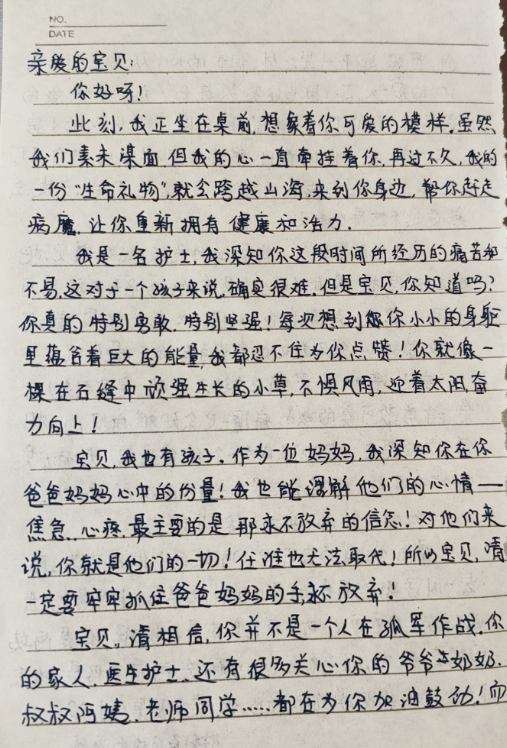 NO.
DATE
亲爱的宝贝:
你好呀!
此刻,我正坐在桌前,想象着你可爱的模样.虽然
我们素未谋面,但我的心一直牵挂着你,再过不久,我的
一份“生命礼物”,就会跨越山海,来到你身边,帮你赶走
病魔,让你重新拥有健康和活力.
我是一名护士,我深知你这段时间所经历的痛苦和
不易,这对于一个孩子来说,确实很难,但是宝贝,你知道吗?
你真的特别勇敢,特别坚强!每次想到你小小的身躯
里蕴含着巨大的能量,我都忍不住为你点赞!你就像一
棵在石缝中顽强生长的小草,不惧风雨,迎着太阳奋
力向上!
宝贝,我也有孩子.作为一位妈妈,我深知你在你
爸爸妈妈心中的份量!我也能理解他们的心情——
焦急、心疼,最主要的是那永不放弃的信念!对他们来
说,你就是他们的一切!任谁也无法取代!所以宝贝,请
一定要牢牢抓住爸爸妈妈的手,永不放弃!
宝贝,请相信,你并不是一个人在孤军作战.你
的家人,医生护士,还有很多关心你的爷爷奶奶,
叔叔阿姨,老师同学.....都在为你加油鼓劲!而